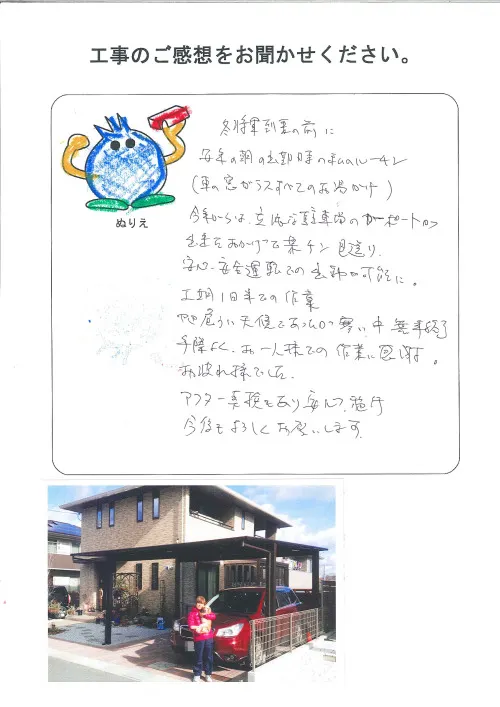 工事のご感想をお聞かせください。
ぬりえ
冬将軍到来の前に
毎年の朝の出勤時の私のルーチン
(車の窓ガラスすべてのお湯かけ)
今年からは、立派な駐車場のカーポートが
出来たおかげで楽チン見送り、
安心、安全運転での出勤が可能に。
工期1日半での作業
天候であったので寒い中無事終了
手際よく、お一人様での作業に感謝。
お疲れ様でした。
アフター点検もあり安心
今後もよろしくお願いします。